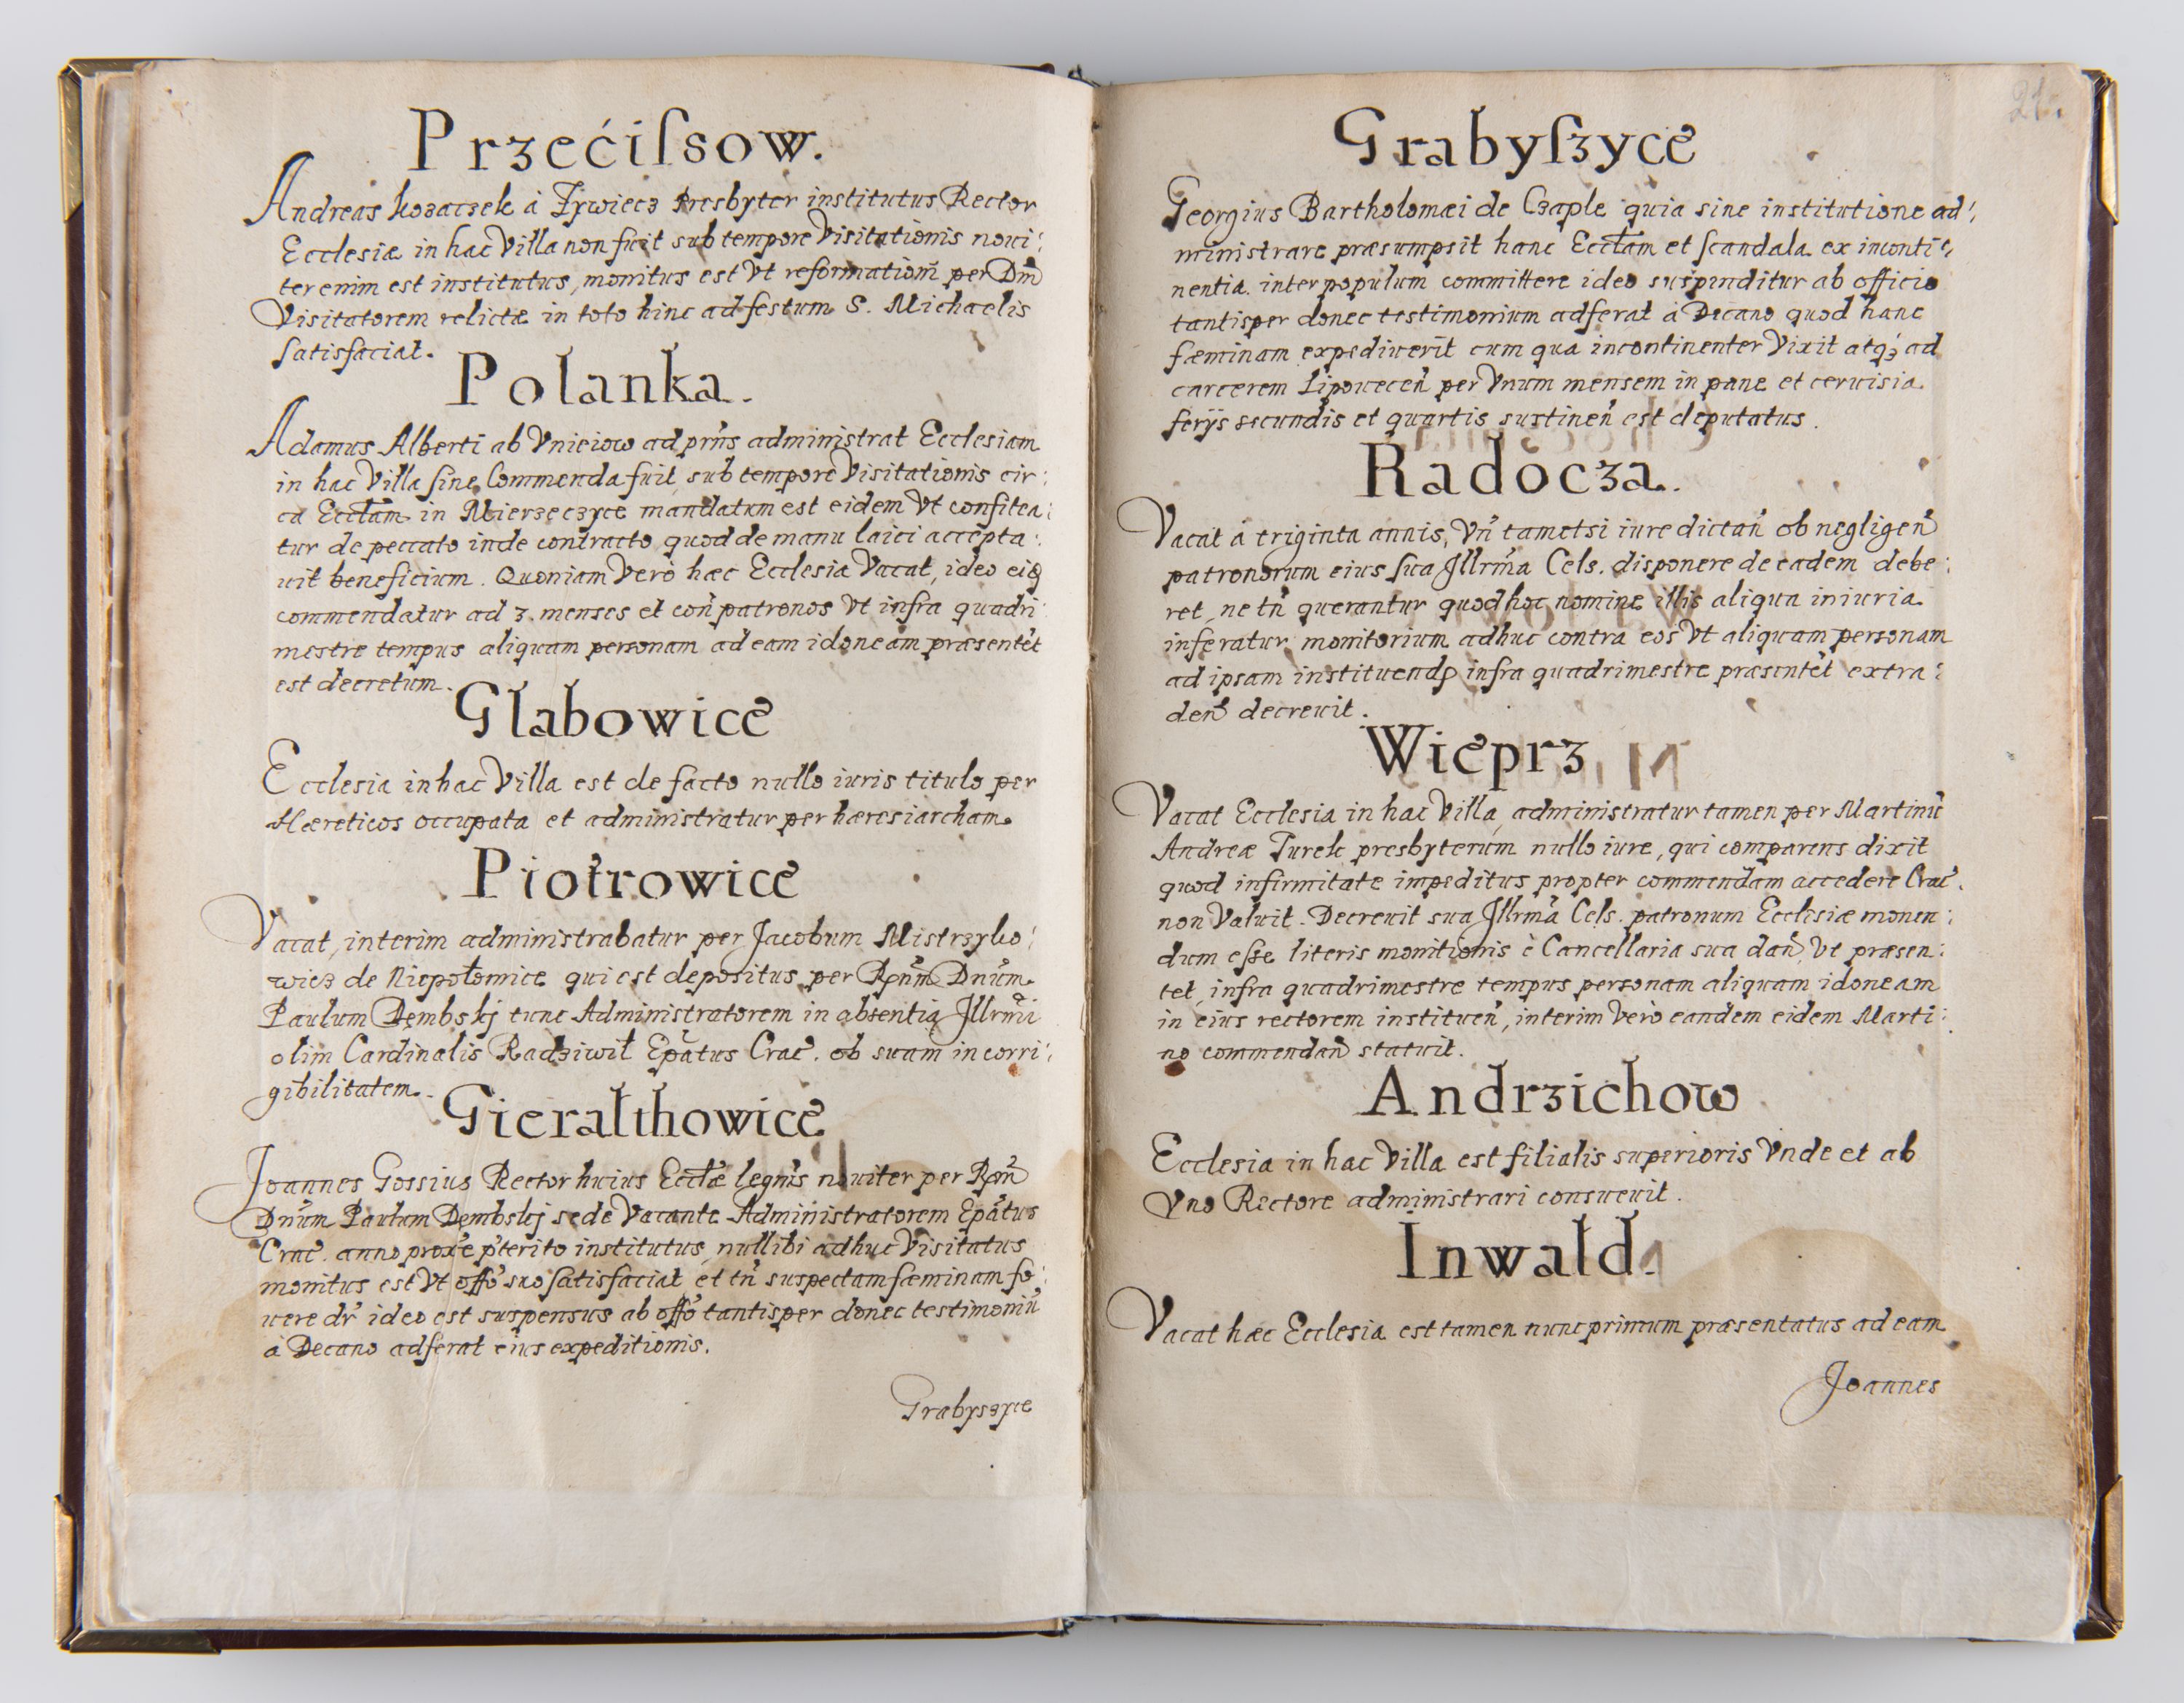 Przećiſsow.
Andreas Kozaczek á Zẏwiecz Presbyter institutus Rector
Ecclesiæ in hac Villa non fuit sub tempore Visitationis noui:
ter enim est institutus, monitus est Vt reformationi per Dm̃
Visitatorem relictæ in toto hinc ad festum S. Michaelis
ſatisfaciat.
Polanka.
Adamus Alberti ab Vnieiow ad prn̄s administrat Ecclesiam
in hac Villa ſine Commenda fuit sub tempore Visitationis cir:
ca Eccl̃am in Mierzeczyce mandatum est eidem Vt confitea:
tur de peccato inde contracto quod de manu laici accepta:
uit beneficium. Quoniam Verò hæc Ecclesia Vacat, ideo ei
commendatur ad 3. menses et coñ patronos Vt infra quadri:
mestre tempus aliquam personam ad eam idoneam præsentēt
est decretum.
Glabowice
Ecclesia in hac Villa est de facto nullo iuris titulo per
Hæreticos occupata et administratur per hæresiarcham.
Piotrowice
Vacat, interim administrabatur per Jacobum Mistrzyko:
wicz de Niepołomice qui est depositus per Rn̄m Dnūm
Paulum Dembskj tunc Administratorem in absentia Jllrm̄i
olim Cardinalis Radziwił Ep̄atus Crac̄. ob suam incorri:
gibilitatem.
Gieralthowice
Joannes Gossius Rector huius Eccl̃æ legm̄s nouiter per Rn̄
Dnūm Paulum Dembskj sede Vacante Administratorem Ep̄atus
Crac̄. anno prox̄e p̄terito institutus, nullibi adhuc Visitatus
monitus est Vt off̄o suo ſatisfaciat et tn̄ suspectam fæminam fo:
uere dr̄ ideo est suspensus ab off̄o tantisper donec testimoniū
a Decano adferat eius expeditionis.
Grabyszyce
21.
Grabyſzyce
Georgius Bartholomæi de Czaple quia sine institutione ad:
ministrare præsumpsit hanc Eccl̃am et ſcandala ex inconti:
nentia inter populum committere ideo suspenditur ab officio
tantisper donec testimonium adferat a Decano quod hanc
fæminam expediuerit cum qua incontinenter Vixit atqꝫ ad
carcerem Lipoueceñ per Vnum mensem in pane et ceruisia
ferijs secundis et quartis sustineñ est deputatus.
Radocza.
Vacat á triginta annis, Vn̄ tametsi iure dictañ ob negligeñ
patronorum eius ſua Jllrm̄a Cels. disponere de eadem debe:
ret, ne tn̄ querantur quod hoc nomine illis aliqua iniuria
inferatur monitorium adhuc contra eos Vt aliquam personam
ad ipsam instituend infra quadrimestre præsentēt extra:
deñ decreuit.
Wieprz
Vacat Ecclesia in hac Villa, administratur tamen per Martinū
Andreæ Turek presbyterum nullo iure, qui comparens dixit
quod infirmitate impeditus propter commendam accedere Crac̄.
non Valuit. Decreuit sua Jllrm̄a Cels. patronum Ecclesiæ monen:
dum eſse literis monitionis è Cancellaria sua dañ, Vt præsen:
tet infra quadrimestre tempus personam aliquam idoneam
in eius rectorem instituen̄, interim Verò eandem eidem Marti:
no commendañ statuit.
Andrzichow
Ecclesia in hac Villa est filialis superioris Vnde et ab
Vno Rectore administrari consueuit.
Inwałd.
Vacat hæc Ecclesia est tamen nunc primum præsentatus ad eam
Joannes